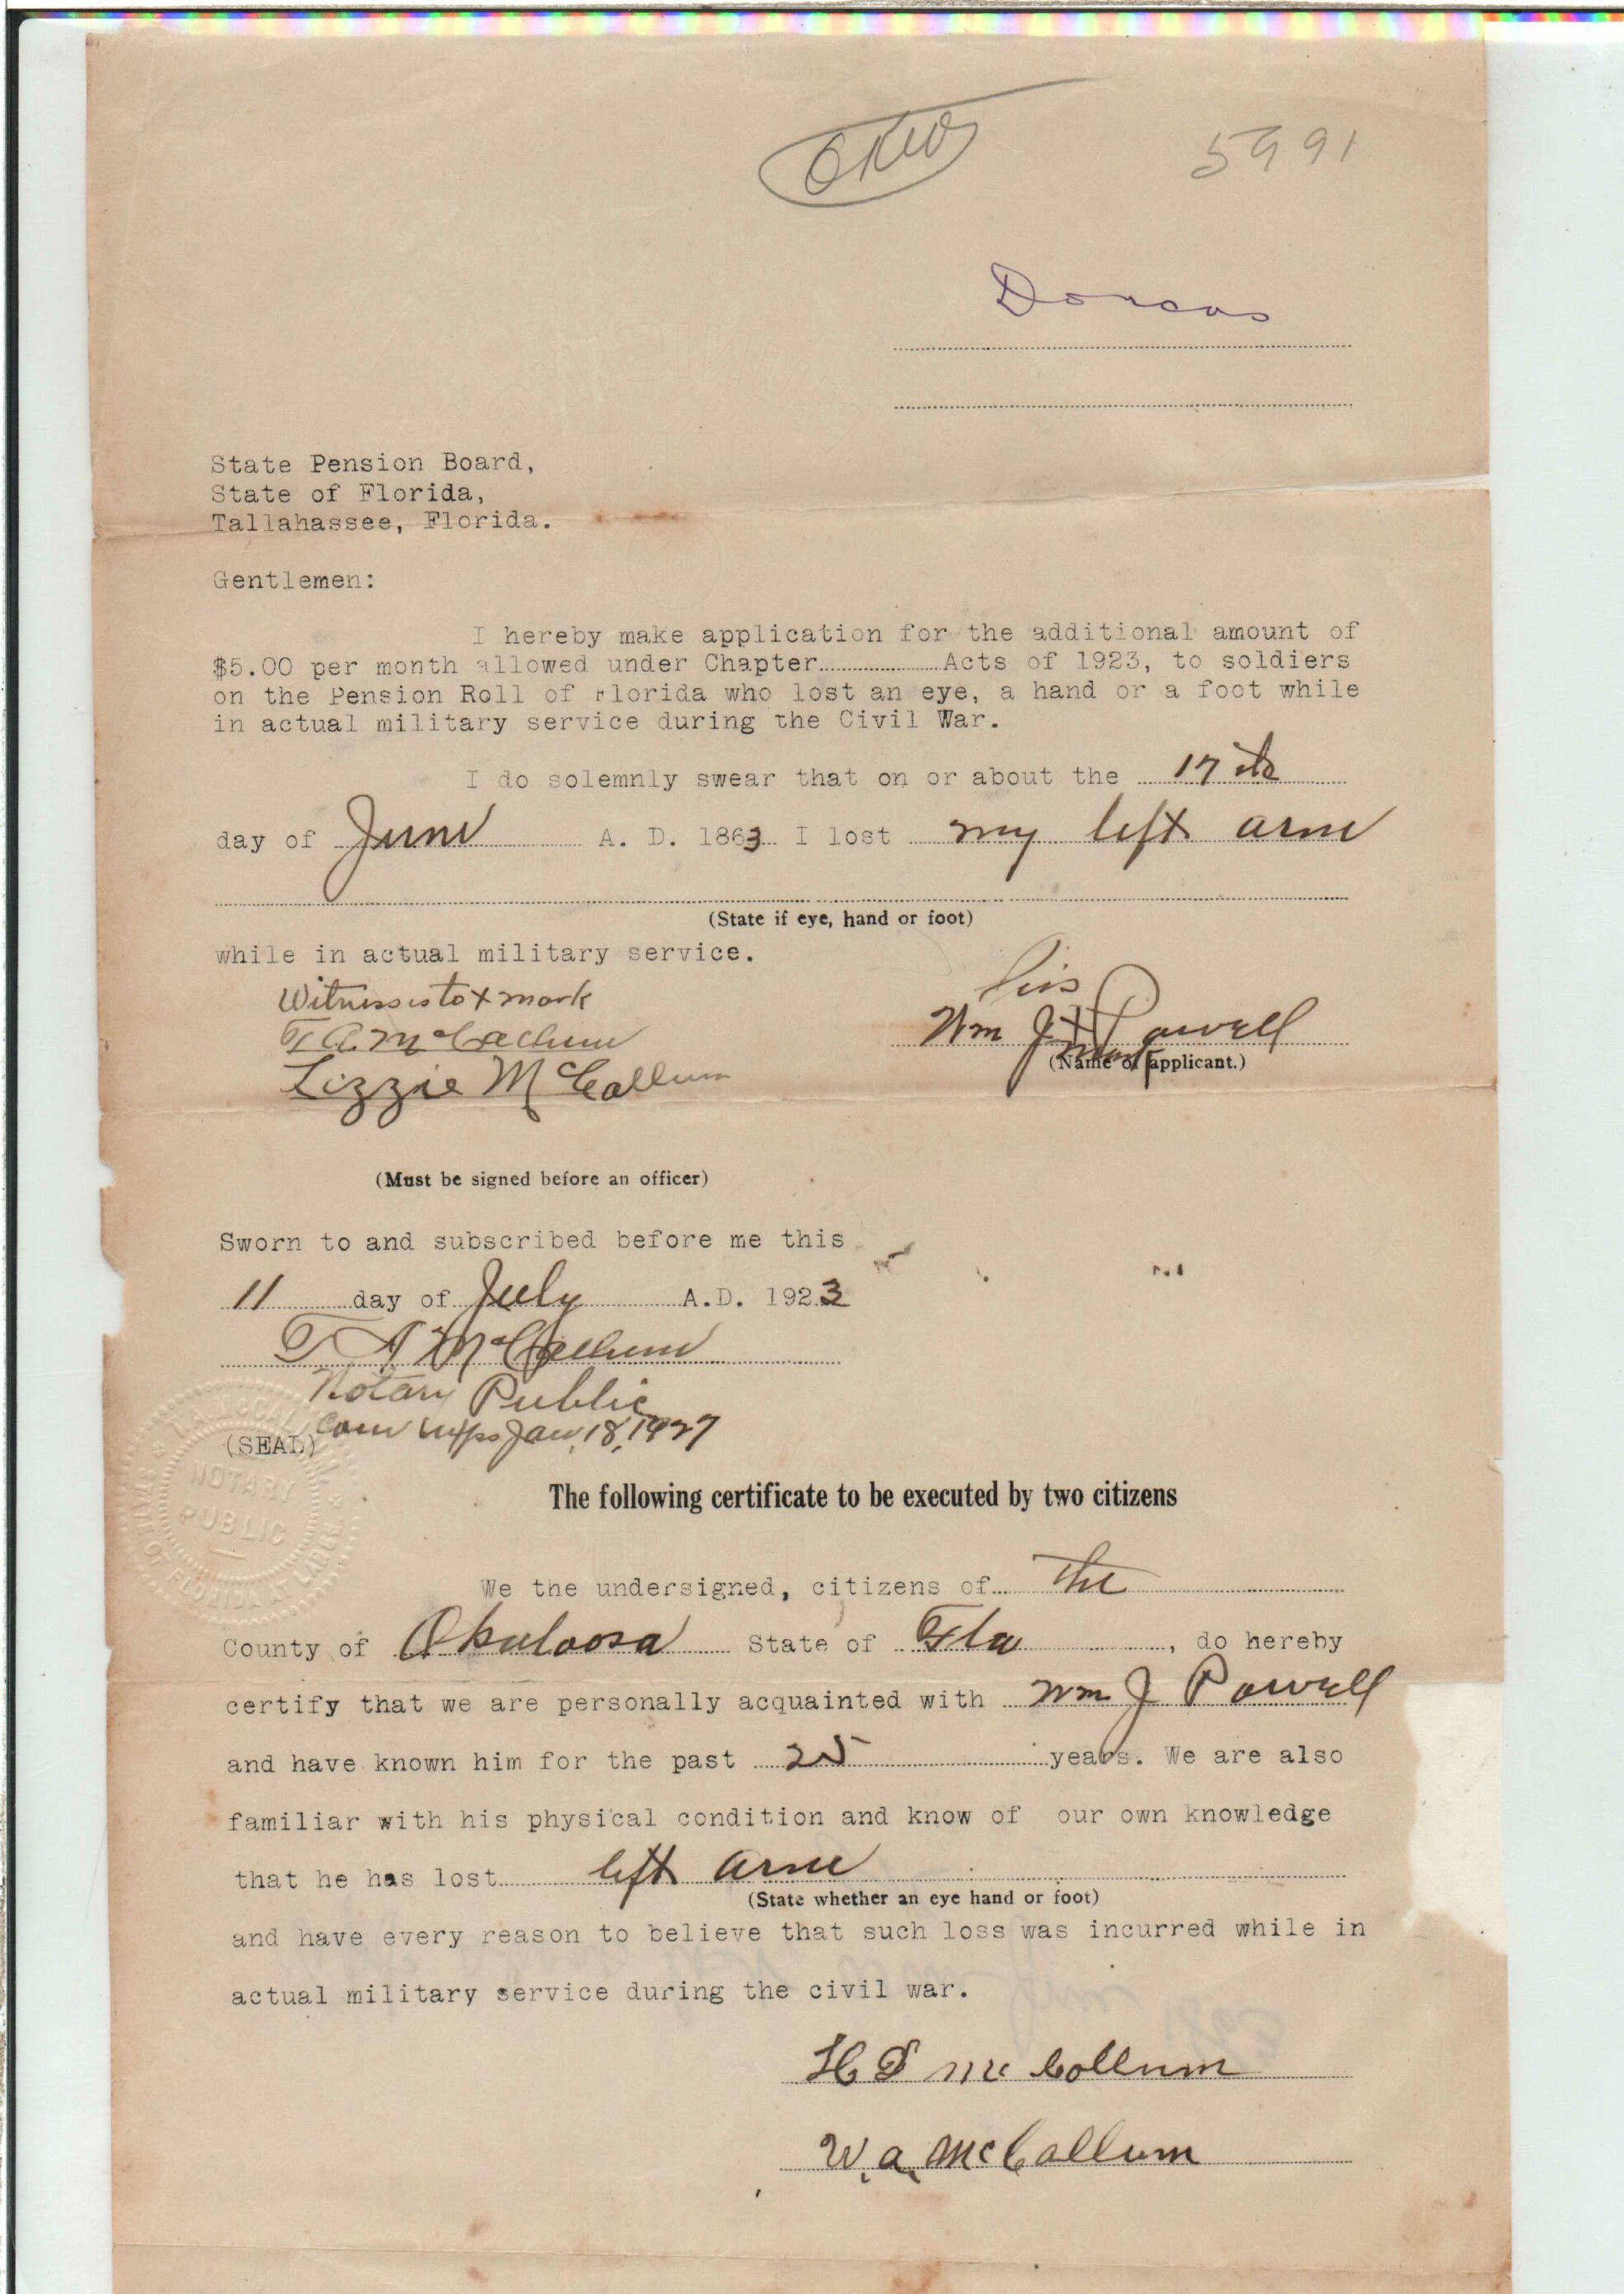 5991
Dorcas
State Pension Board,
State of Florida,
Tallahassee, Florida.
Gentlemen:
I hereby make application for the additional amount of
$5.00 per month allowed under Chapter Acts of 1923, to soldiers
on the Pension Roll of Florida who lost an eye, a hand or a foot while
in actual military service during the Civil War.
I do solemnly swear that on or about the 17th
day of June A. D. 1863 I lost my left arm
(State if eye, hand or foot)
while in actual military service.
Witnesses to X mark
T A McCallum
Lizzie McCallum
his
Wm J X Powell
mark
(Name of applicant.)
(Must be signed before an officer)
Sworn to and subscribed before me this
11 day of July A.D. 1923
T A McCallum
Notary Public
Com exps Jan, 18, 1927
(SEAL)
NOTARY
PUBLIC
STATE OF FLORIDA AT LARGE
The following certificate to be executed by two citizens
We the undersigned, citizens of the
County of Okaloosa State of Fla, do hereby
certify that we are personally acquainted with Wm J Powell
and have known him for the past 25 years. We are also
familiar with his physical condition and know of our own knowledge
that he has lost left arm
(State whether an eye hand or foot)
and have every reason to believe that such loss was incurred while in
actual military service during the civil war.
H D McCollum
W. A. McCallum